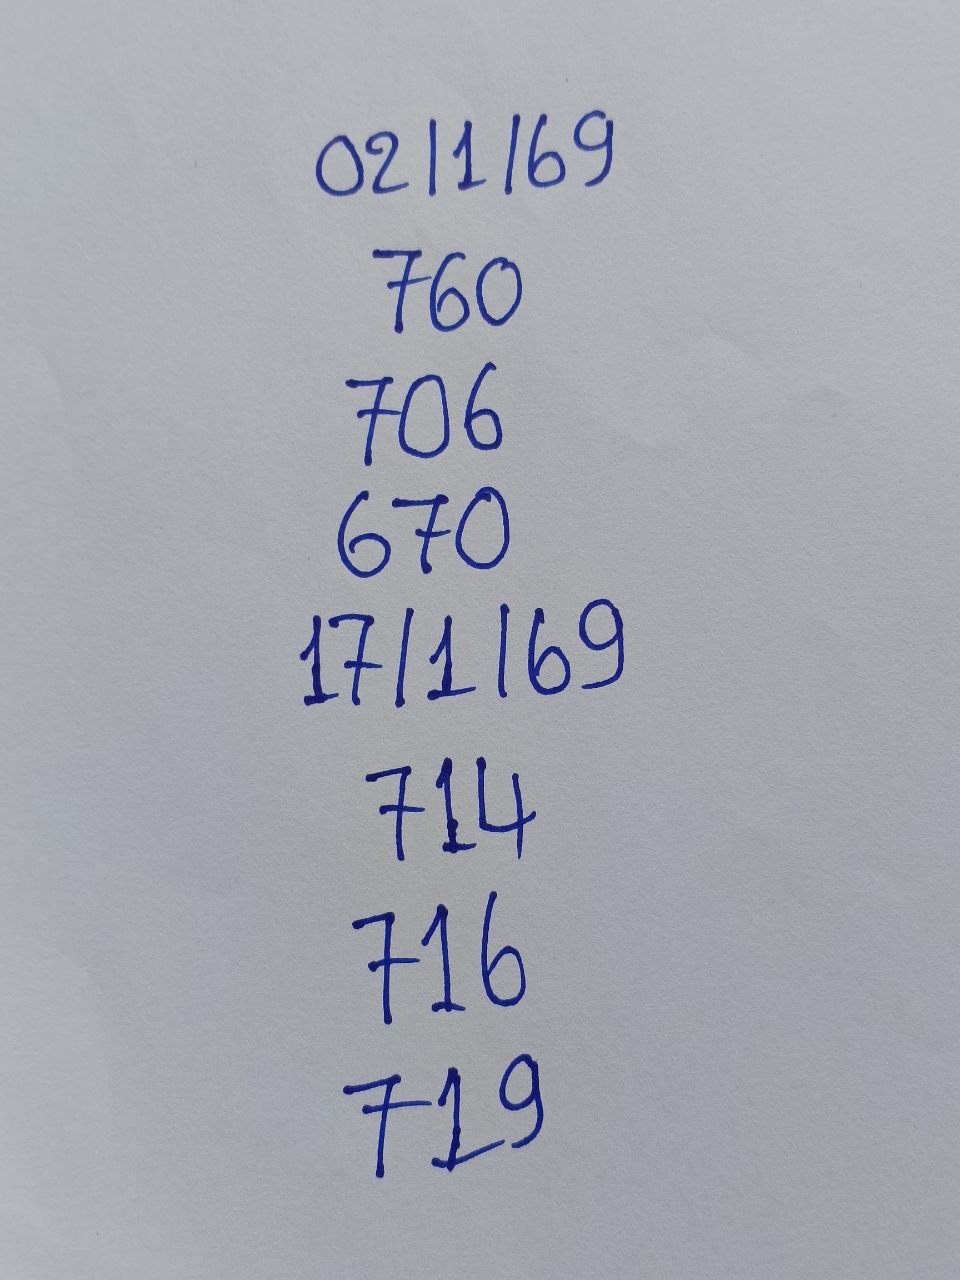 02/1/69
760
706
670
17/1/69
714
716
719